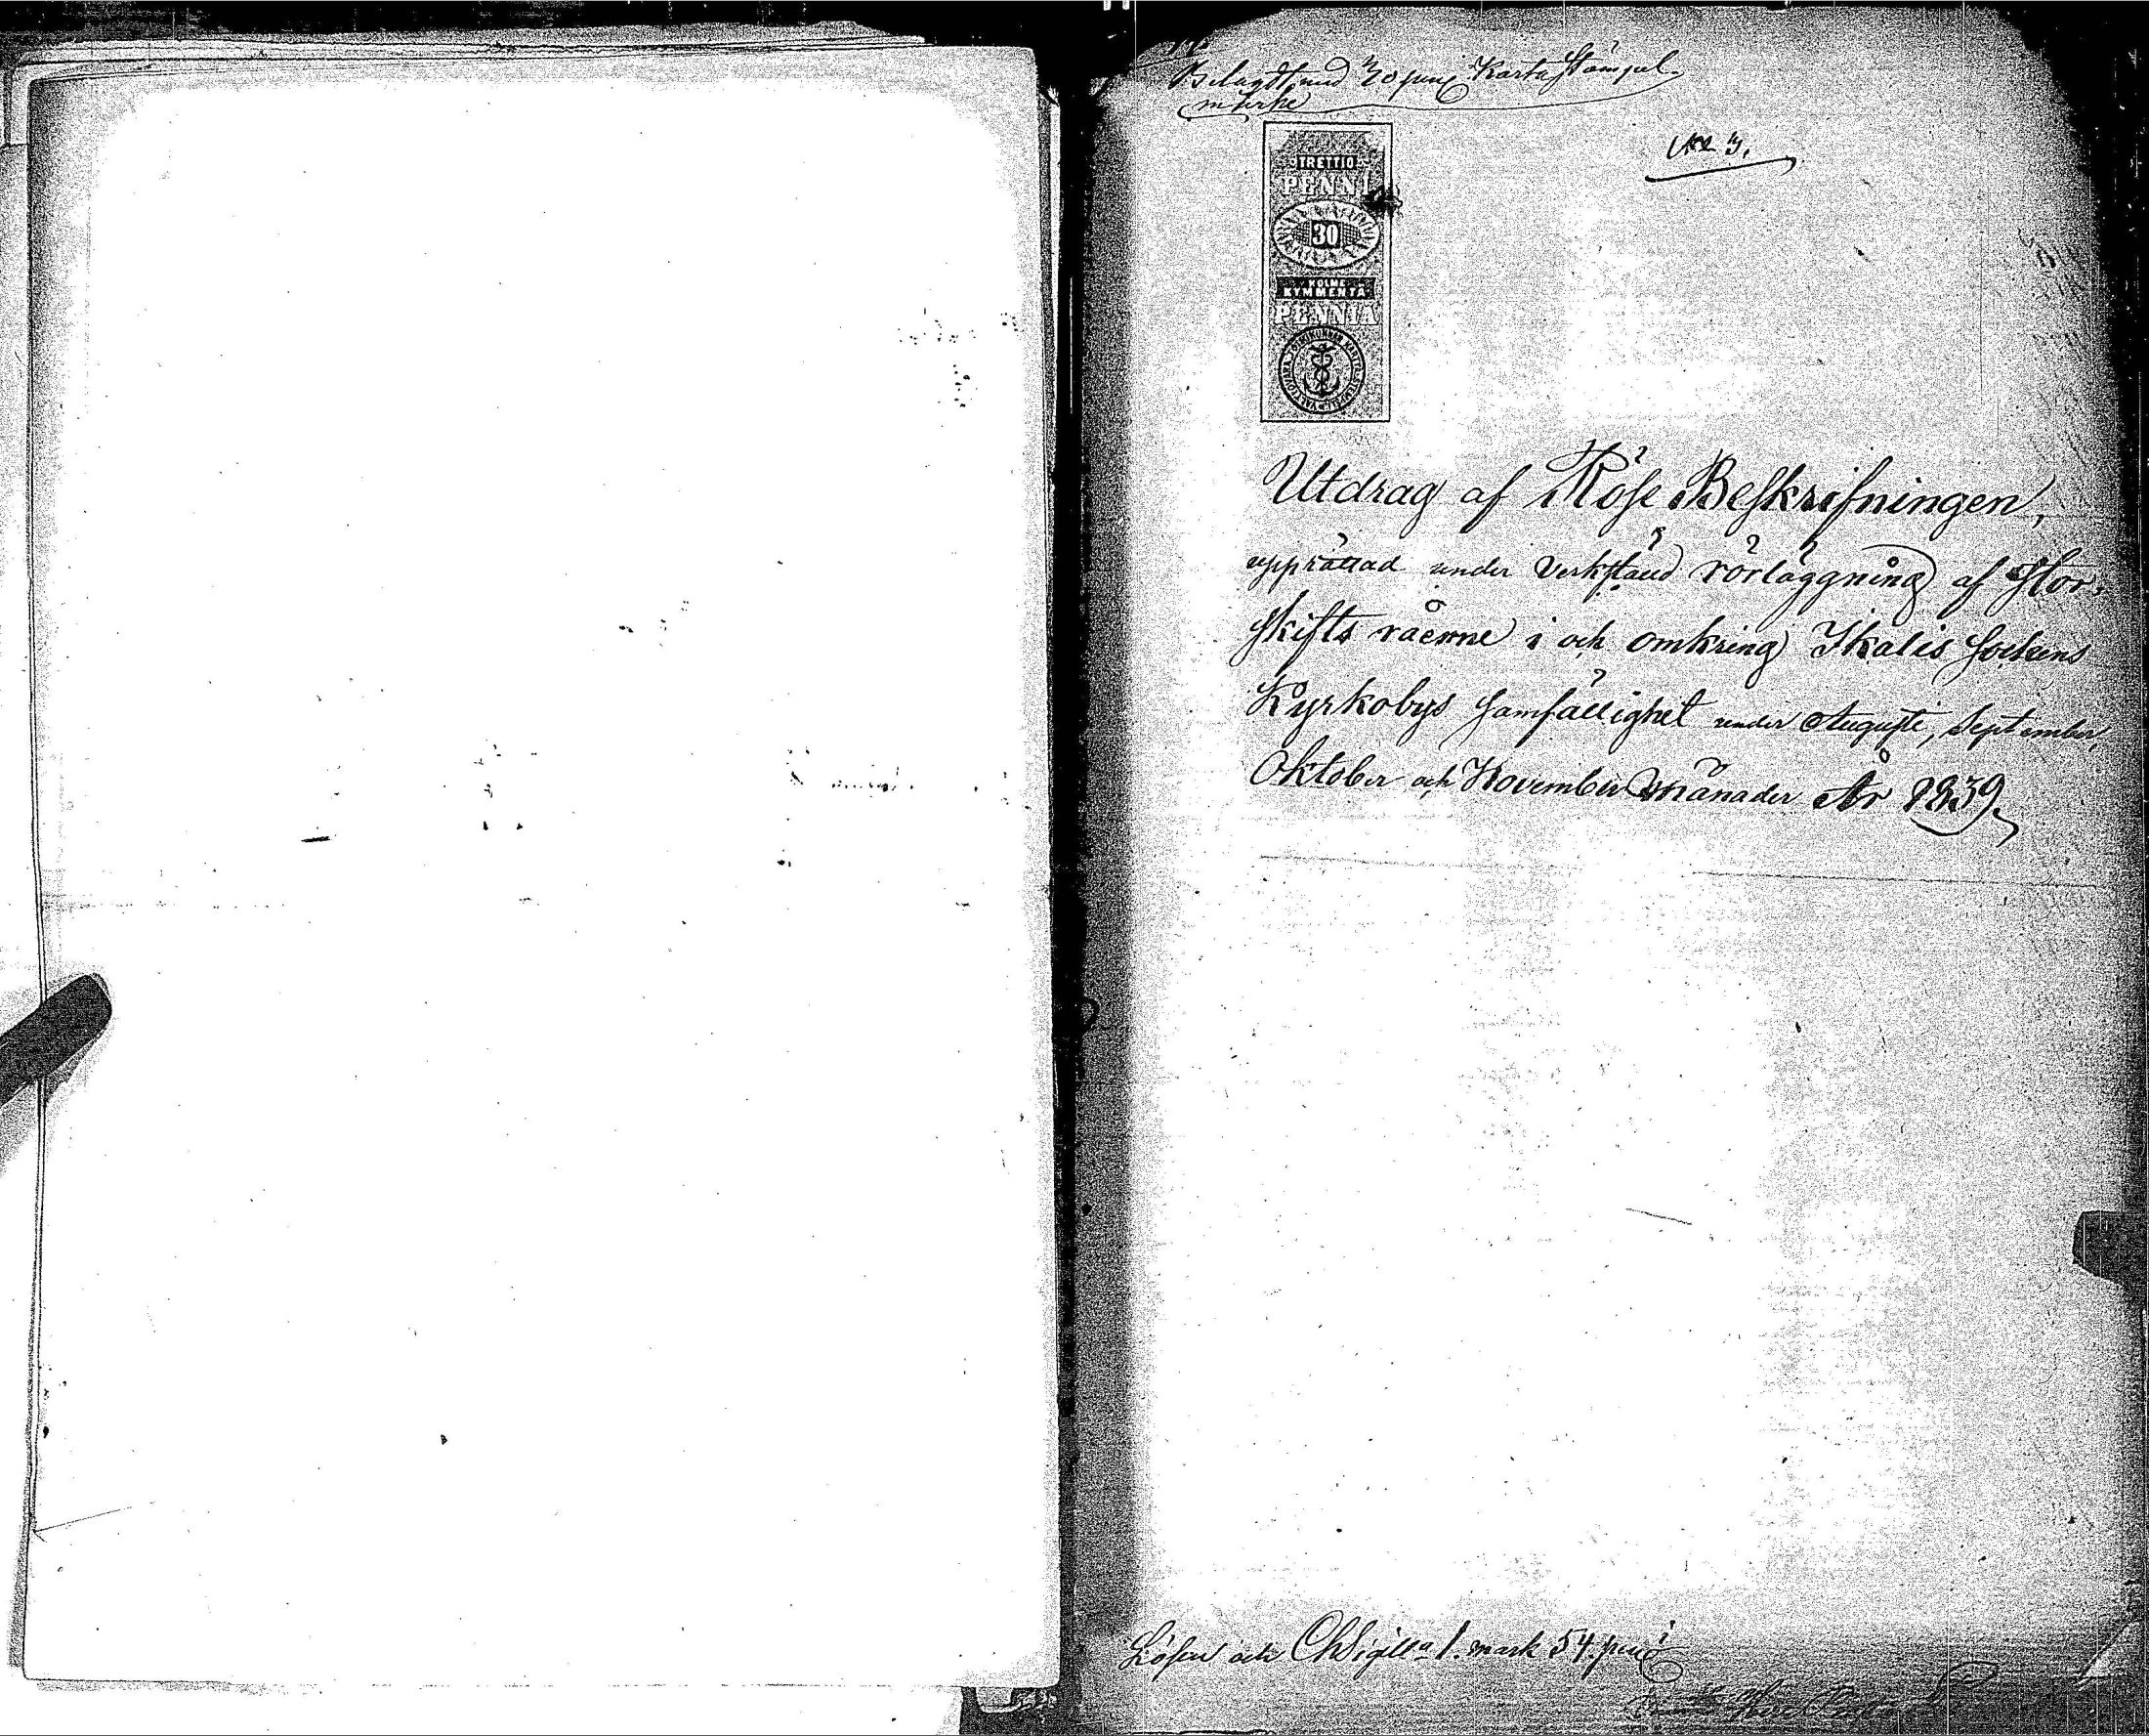 Belagdt med 30 peni Karta Stämpel
märke
No 3.
TRETTIO
PENNI
30
KOLME
KYMMENTÄ
PENNIÄ
Utdrag af Röse Beskrifningen,
upprättad under verkstäld rörläggning af Stor-
skifts råerne i och omkring Ikalis Sockens
Kyrkobys samfällighet under Augusti, September,
Oktober och November månader År 1839.
Lösen och Ch Sigilla 1. mark 54. peni